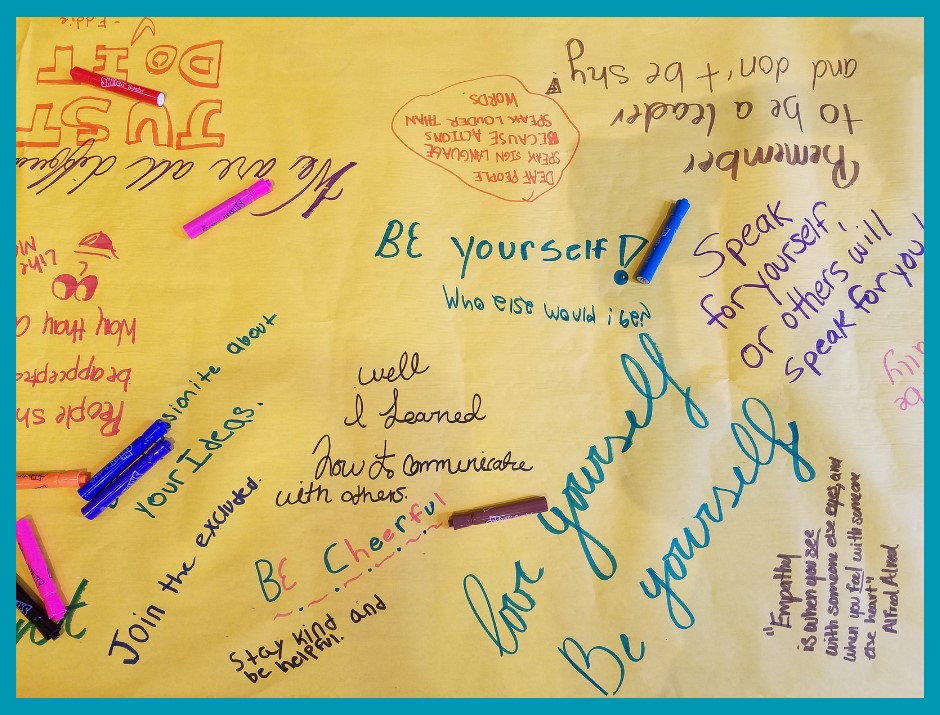 - Eddie
JUST
DO IT
We are all
DEAF PEOPLE
SPEAK SIGN LANGUAGE
BECAUSE ACTIONS
SPEAK LOUDER THAN
WORDS.
Remember
to be a leader
and don't be shy
BE yourself!
Who else would i be?
Speak
for yourself,
or others will
speak for you!
People
be appcepted
Way thay
Like
about
your Ideas.
Join the excluded.
well
I Learned
how to communicate
with others.
BE Cheerful
Stay kind and
be helpful.
love yourself
Be yourself
"Empathy
is when you see
with someone else eyes and
when you feel with someone
else heart"
Alfred Alrnod